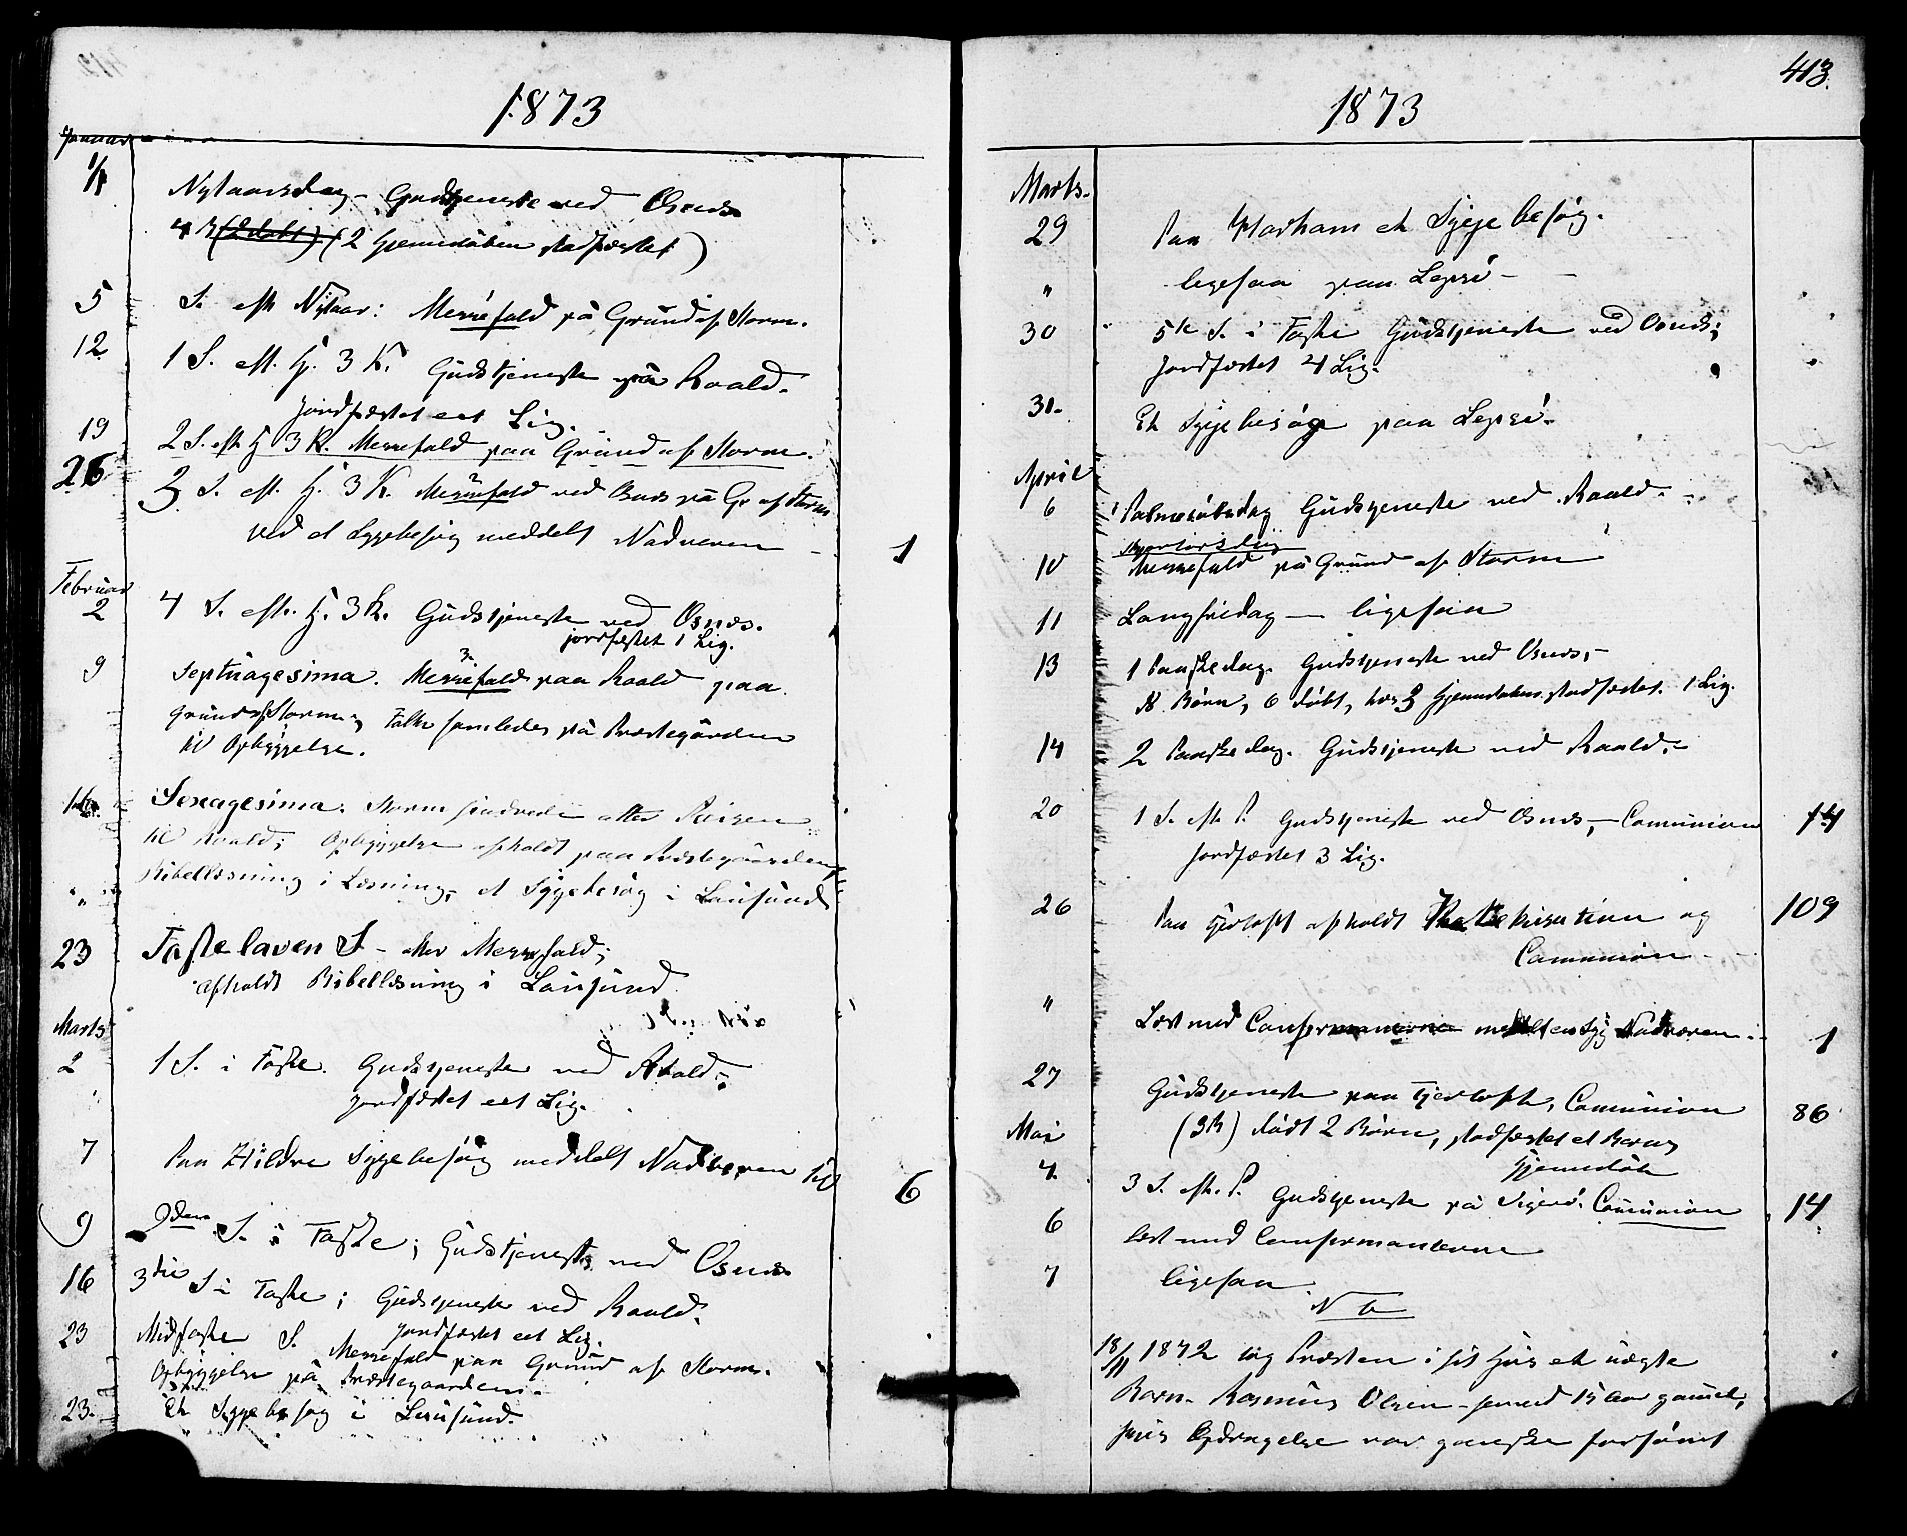 1873
Januar
1/1 Nytaarsdag - Gudstjeneste ved Osnæs
(2 dobt) (2 Hjemmedøbte stadfæstet)
5 S. eft Nytaar: Messefald på Grund af Storm.
12 1 S. eft. H. 3 K. Gudstjeneste på Roald.
Jordfæstet eet Lig.
19 2 S. eft H 3 K. Messefald paa Grund af Storm.
26 3 S. eft. H. 3 K. Messefald ved Osnæs på Gr af Storm
Ved et Sygebesøg meddelt Nadveren - 1
Februar
2 4 S. eft. H. 3 K. Gudstjeneste ved Osnæs.
jordfæstet 1 Lig.
9 Septuagesima. 3 Messefald paa Roald paa
Grund af Storm; Folk samledes på Præstegården
til Opbyggelse.
16 Sexagesima. Storm hindrede atter Reisen
til Roald; Opbyggelse afholdt paa Præstegaarden
" Bibellæsning i Løvsøning, et Sygebesøg i Lausund
23 Fastelaven S - atter Messefald;
afholdt Bibellæsning i Lausund.
Marts
2 1 S. i Faste. Gudstjeneste ved Roald;
jordfæstet eet Lig.
7 Paa Hildre Sygebesøg meddelt Nadveren til 6
9 2den S. i Faste; Gudstjeneste ved Osnæs
16 3die S i Faste; Gudstjeneste ved Roald.
Jordfæstet eet Lig.
23 Midfaste S. Messefald paa Grund af Storm.
Opbyggelse på Præstegaarden.
23. Et Sygebesøg i Lausund.
413.
1873
Marts.
29 Paa Harham et Sygebesøg.
" ligesaa paa Lepsø -
30 5te S. i Faste Gudstjeneste ved Osnæs;
Jordfæstet 4 Lig.
31. Et Sygebesøg paa Lepsø.
April
6 Palmesøndag Gudstjeneste ved Roald.
Skjærtorsdag
10 Messefald på Grund af Storm
11 Langfredag - ligesaa
13 1 Paaskedag. Gudstjeneste ved Osnæs,
8 Børn, 6 døbt, hos 2 Hjemmedåben stadfæstet. 1 Lig.
14 2 Paaskedag. Gudstjeneste ved Roald.
20 1 S. eft P. Gudstjeneste ved Osnæs, - Comunion 14
Jordfæstet 3 Lig.
26 Paa Fjærtoft afholdt Katekisation og 109
Comunion -
" Læst med Confirmanterne meddelt en Syg Nadveren 1
27 Gudstjeneste paa Fjærtoft, Comunion 86
(3 B) døbt 2 Børn, stadfæstet et Barns
Hjemmedåb
Mai
4 3 S. eft. P. Gudstjeneste på Sigerø. Comunion 14
6 Læst med Confirmanterne
7 ligesaa.
Nb
18/11 1872 tog Præsten i sit Huus et uægte
Barn. Rasmus Olsen - henved 15 Aar gamel,
hvis Opdragelse var ganske forsømt